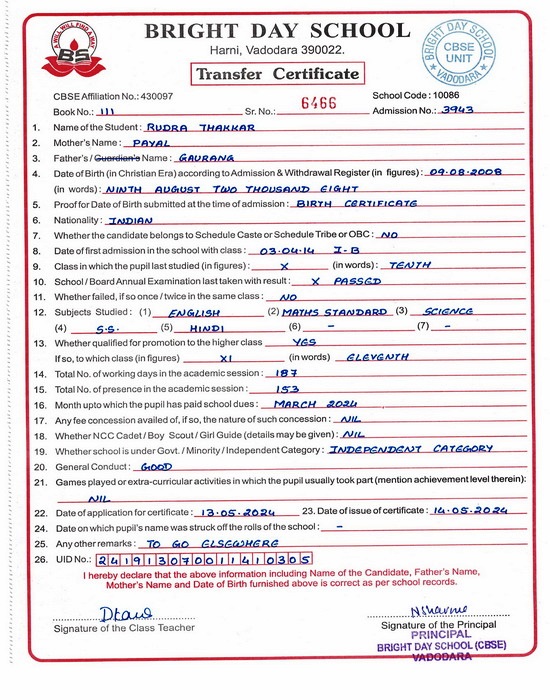 A WILL WILL FIND A WAY
BS
BRIGHT DAY SCHOOL
Harni, Vadodara 390022.
Transfer Certificate
BRIGHT DAY SCHOOL
CBSE
UNIT
VADODARA
CBSE Affiliation No.: 430097 School Code : 10086
Book No.: III Sr. No.: 6466 Admission No.: 3943
1. Name of the Student : RUDRA THAKKAR
2. Mother's Name : PAYAL
3. Father's / Guardian's Name : GAURANG
4. Date of Birth (in Christian Era) according to Admission & Withdrawal Register (in figures) : 09.08.2008
(in words) : NINTH AUGUST TWO THOUSAND EIGHT
5. Proof for Date of Birth submitted at the time of admission : BIRTH CERTIFICATE
6. Nationality : INDIAN
7. Whether the candidate belongs to Schedule Caste or Schedule Tribe or OBC : NO
8. Date of first admission in the school with class : 03.04.14 I-B
9. Class in which the pupil last studied (in figures) : X (in words) : TENTH
10. School / Board Annual Examination last taken with result : X PASSED
11. Whether failed, if so once / twice in the same class : NO
12. Subjects Studied : (1) ENGLISH (2) MATHS STANDARD (3) SCIENCE
(4) S.S. (5) HINDI (6) - (7) -
13. Whether qualified for promotion to the higher class YES
If so, to which class (in figures) XI (in words) ELEVENTH
14. Total No. of working days in the academic session : 187
15. Total No. of presence in the academic session : 153
16. Month upto which the pupil has paid school dues : MARCH 2024
17. Any fee concession availed of, if so, the nature of such concession : NIL
18. Whether NCC Cadet / Boy Scout / Girl Guide (details may be given) : NIL
19. Whether school is under Govt. / Minority / Independent Category : INDEPENDENT CATEGORY
20. General Conduct : GOOD
21. Games played or extra-curricular activities in which the pupil usually took part (mention achievement level therein):
NIL
22. Date of application for certificate : 13.05.2024 23. Date of issue of certificate : 14.05.2024
24. Date on which pupil's name was struck off the rolls of the school : -
25. Any other remarks : TO GO ELSEWHERE
26. UID No.: 241913070011410305
I hereby declare that the above information including Name of the Candidate, Father's Name,
Mother's Name and Date of Birth furnished above is correct as per school records.
Signature of the Class Teacher Signature of the Principal
PRINCIPAL
BRIGHT DAY SCHOOL (CBSE)
VADODARA